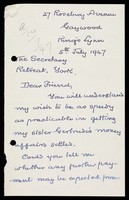 27 Rosebery Avenue
Gaywood
King's Lynn
5th July 1947
The Secretary
Retreat, York
Dear Friend,
You will understand
my wish to be as speedy
as practicable in getting
my sister Gertrude's money
affairs settled.
Could you tell me
whether any further pay-
ment may be expected from